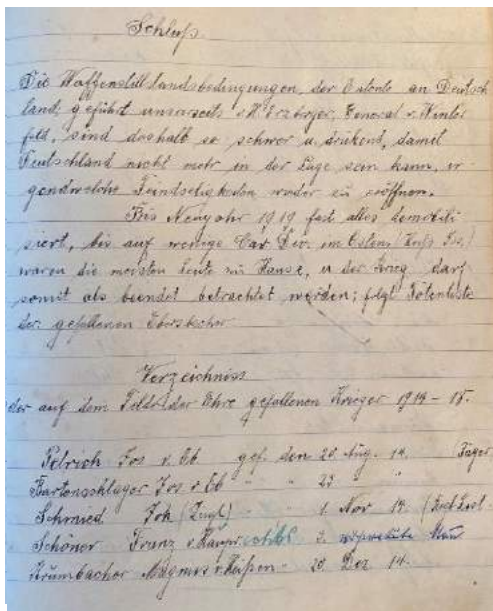 Schluß.
Die Waffenstillstandsbedingungen, der Entente an Deutsch
land, geführt unserseits v. M. Erzberger, General v. Winter
feld, sind deshalb so schwer u. drükend, damit
Deutschland nicht mehr in der Lage sein kann, ir
gendwelche Feindseligkeiten wieder zu eröffnen.
Bis Neujahr 1919 fast alles demobili
siert, bis auf wenige Kav. Div. im Osten,
waren die meisten Leute zu Hause, u. der Krieg darf
somit als beendet betrachtet werden; folgt Totenliste
der gefallenen Ebersbacher
Verzeichniss
der auf dem Felde der Ehre gefallenen Krieger 1914 - 18.
Petrich Jos v. Eb. gef. den 20 Aug. 14.
Bartenschlager Jos v. Eb " " 23 " "
Schmied Joh 1. Nov 14.
Schöner Franz v. 2.
Krumbacher Magnus v. 20 Dez 14.